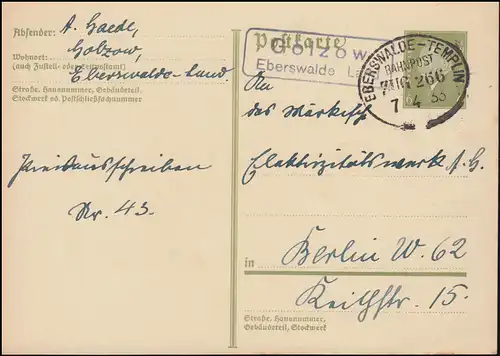 Absender: A. Gaede,
Wohnort: Golzow,
(auch Zustell- oder Leitpostamt)
Eberswalde-Land.
Straße, Hausnummer, Gebäudeteil,
Stockwerk od. Postschließfachnummer
Preisausschreiben
Nr. 43.
Postkarte
Golzow
Eberswalde
EBERSWALDE-TEMPLIN
BAHNPOST
ZUG 266
7 4
An
das Märkisch
Elektrizitätswerk A.G.
in Berlin W. 62
Keithstr. 15.
Straße, Hausnummer,
Gebäudeteil, Stockwerk